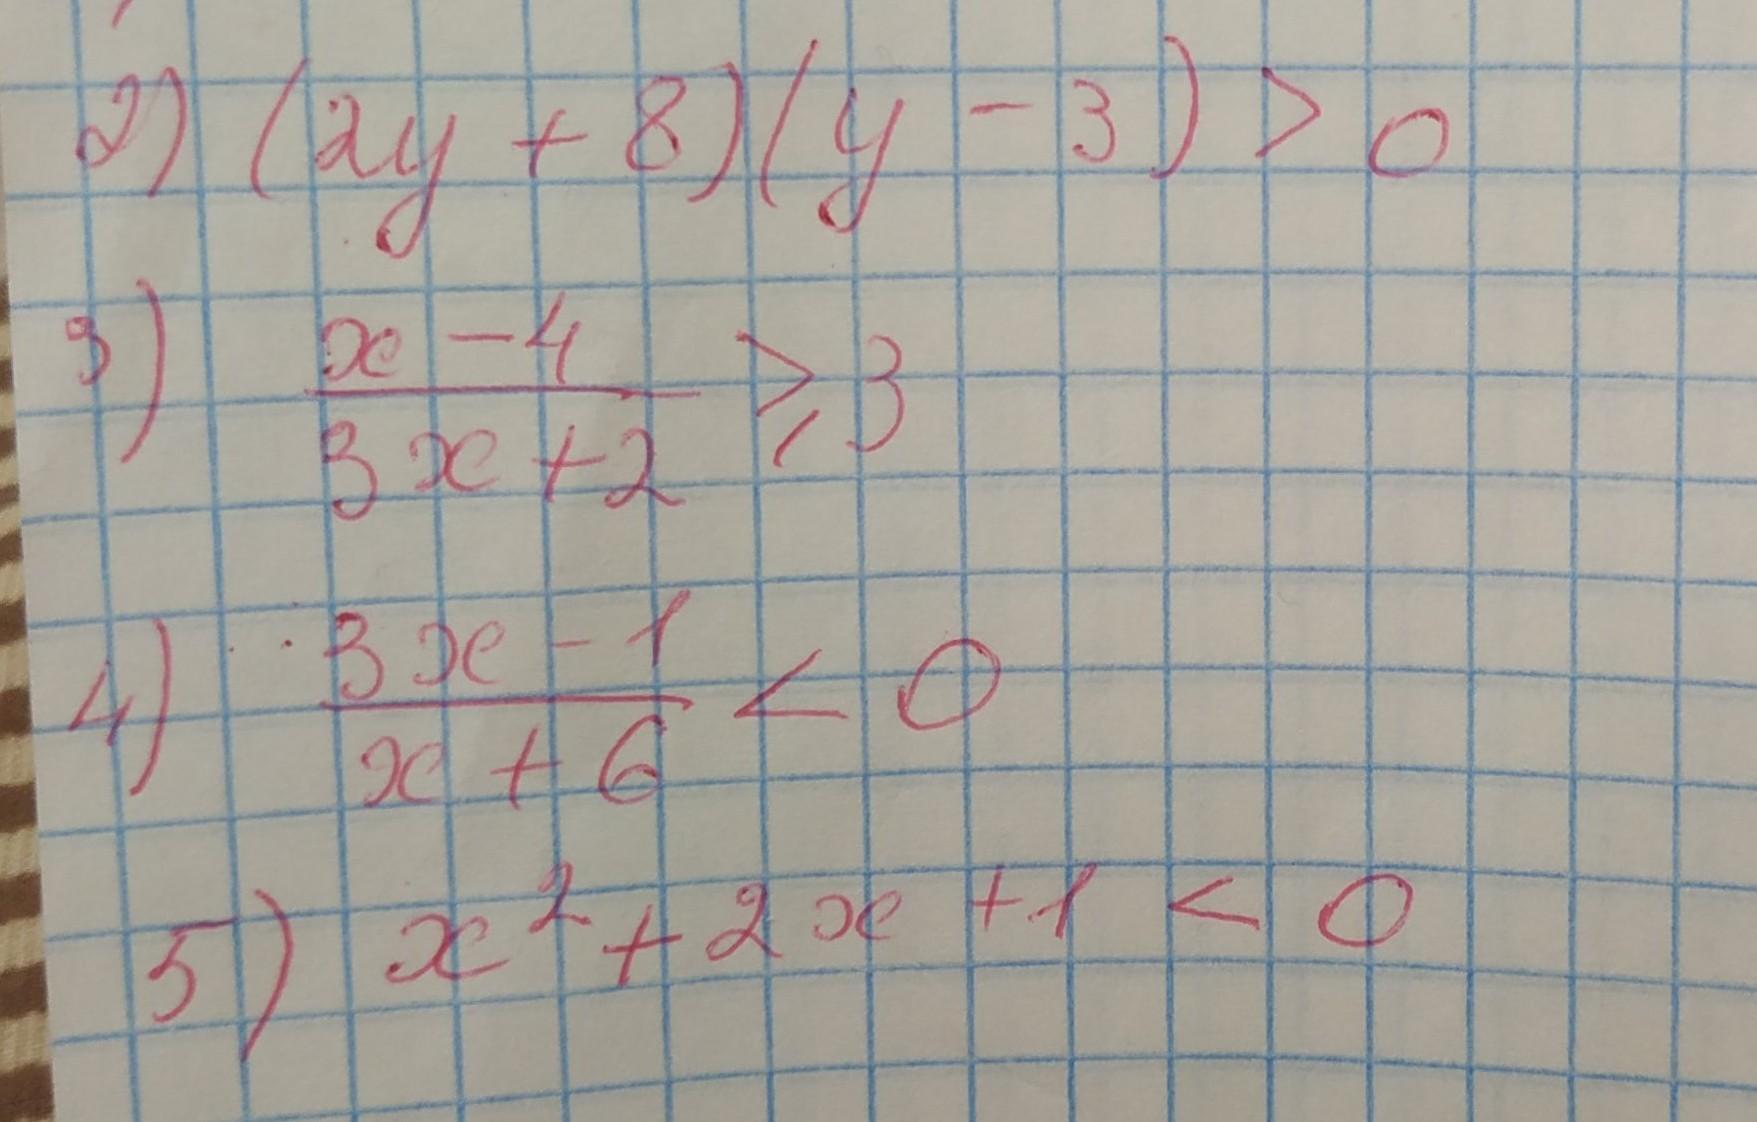 2) (2y + 8)(y - 3) > 0
3) x - 4 / 3x + 2 ⩾ 3
4) 3x - 1 / x + 6 < 0
5) x² + 2x + 1 < 0